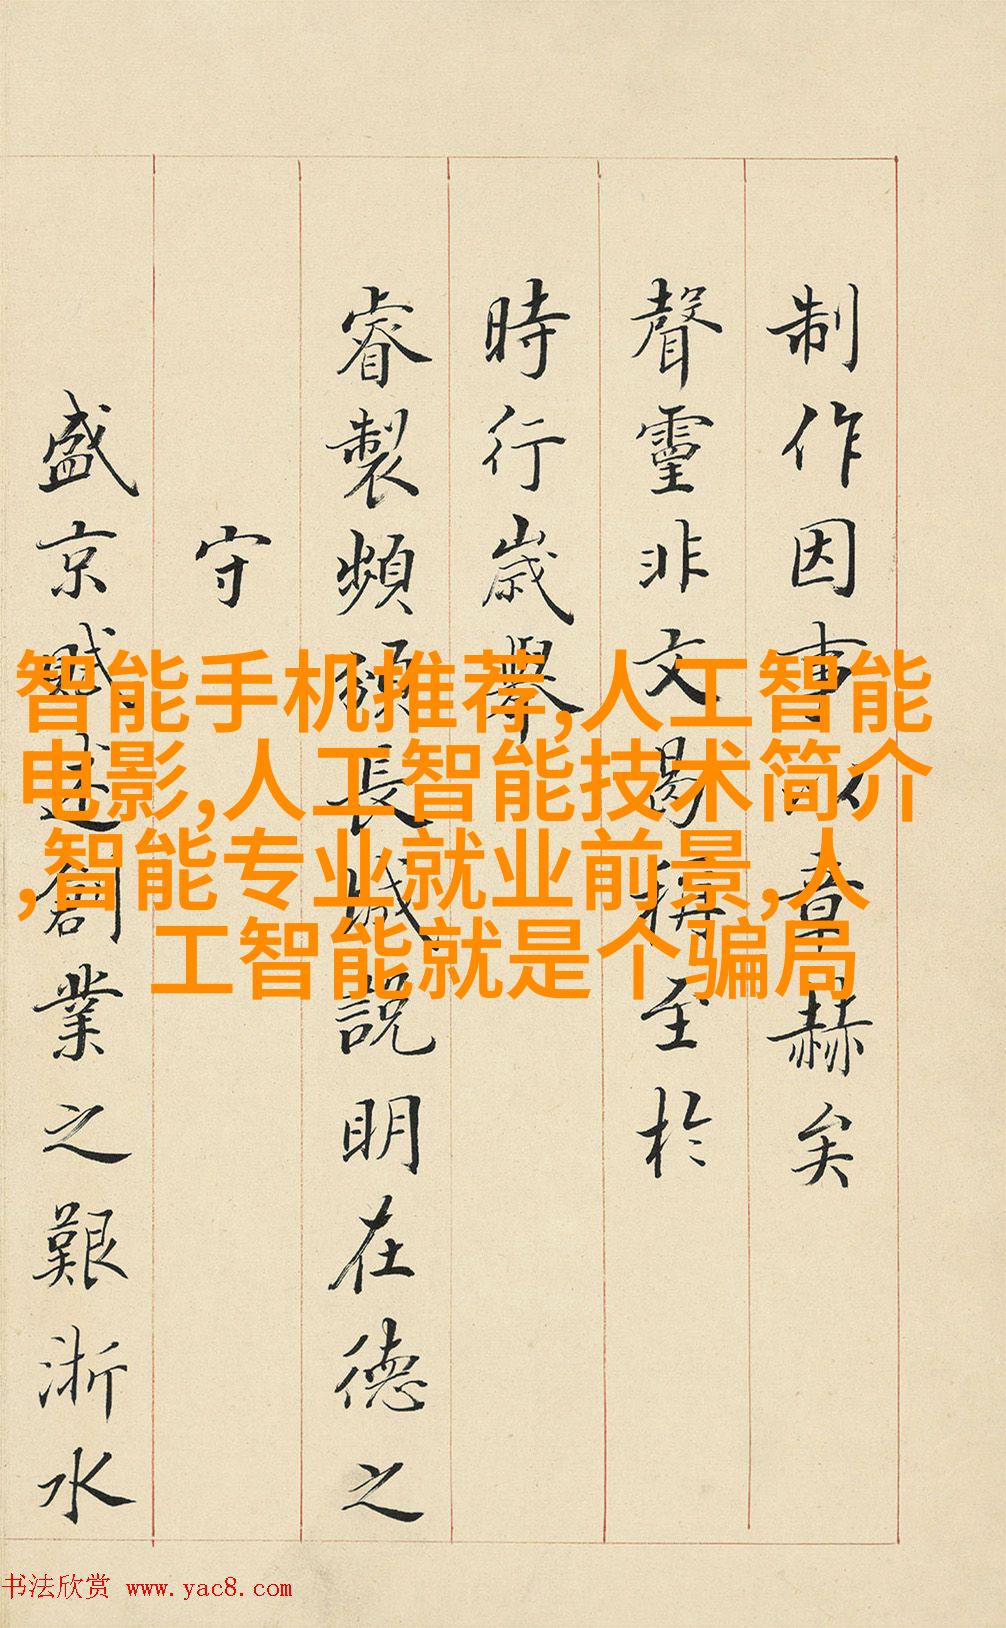 制作因事以章赫矣
聲靈非文曷揚至於
時行歲舉
睿製頻頒長城說明在德之
守
盛京賦述創業之艱浙水
智能手机推荐,人工智能
电影,人工智能技术简介
,智能专业就业前景,人
工智能就是个骗局
书法欣赏 www.yac8.com